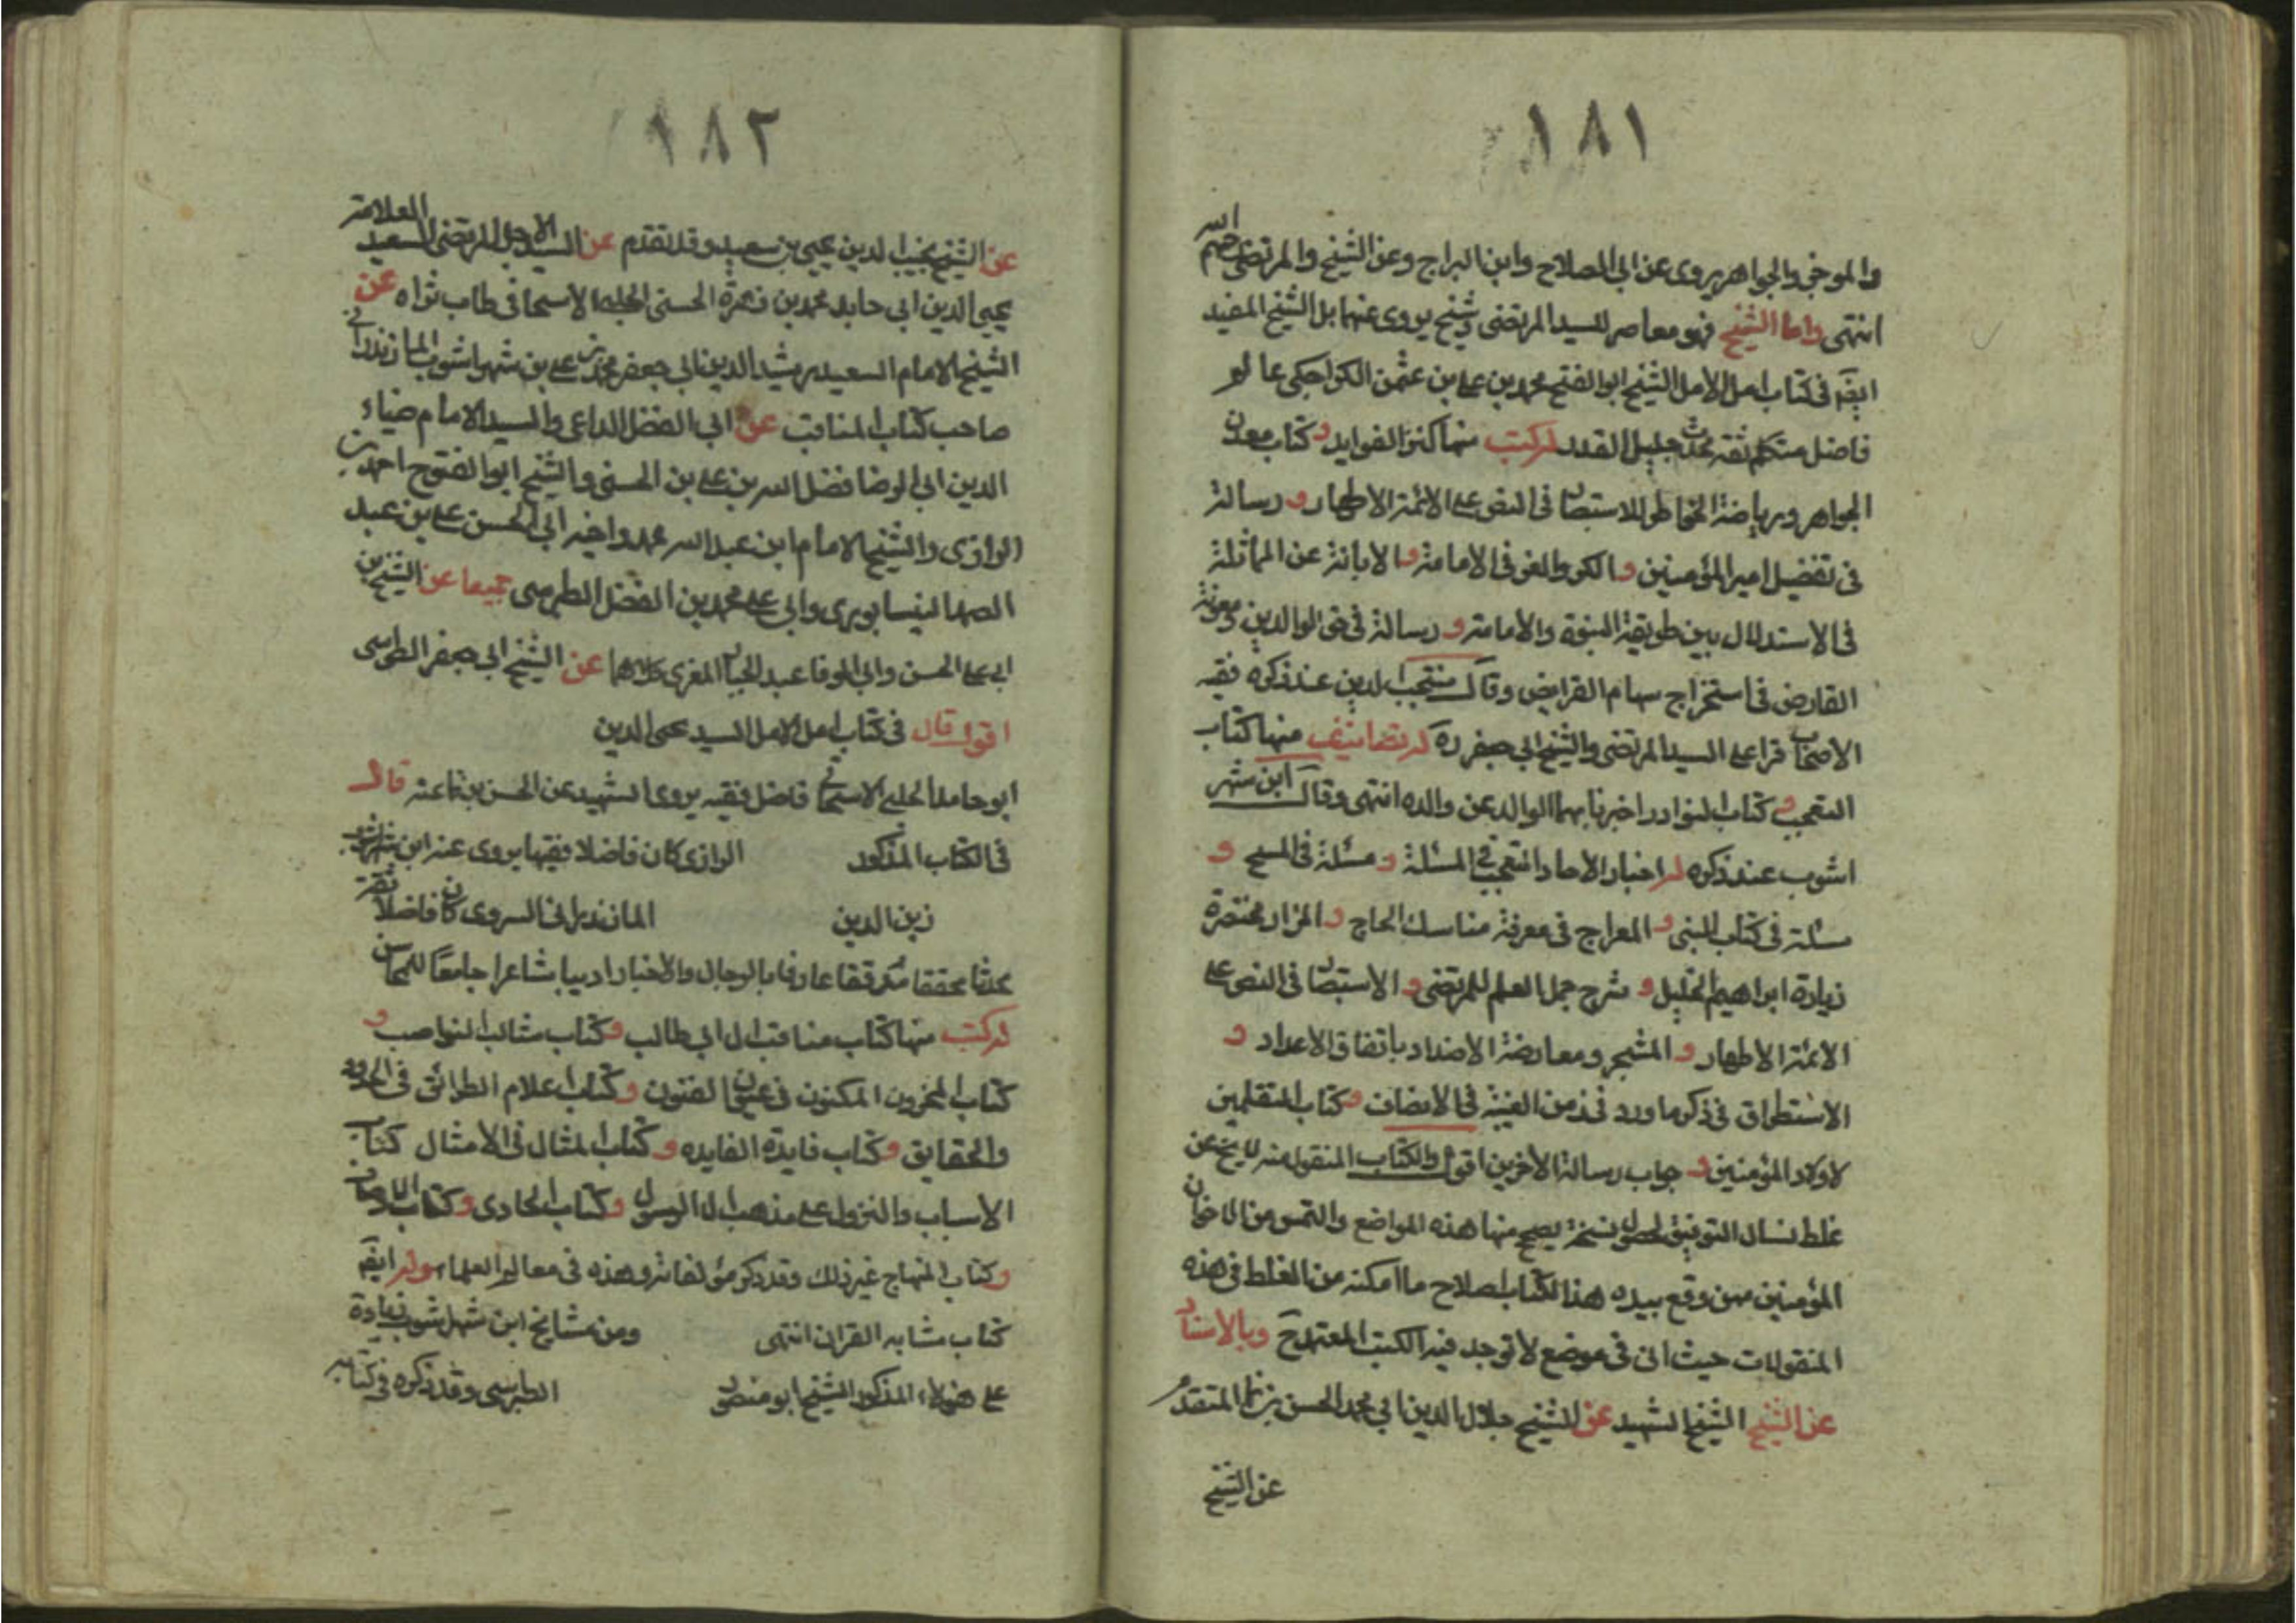 ١٨١
والموجز والجواهر يروى عن ابى الصلاح وابن البراج وعن الشيخ والمرتضى رحمهم الله
انتهى واما الشيخ فهو معاصر للسيد المرتضى وشيخ يروى عنهما بل الشيخ المفيد
ايضَ فى كتاب امل الامل الشيخ ابو الفتح محمد بن على بن عثمن الكراجكى عالم
فاضل متكلم ثقه محدث جليل القدر له كتب منها كنز الفوايد وكتاب معدن
الجواهر ورياضة الخاطر والاستبصار فى النص على الائمة الاطهار ورسالة
فى تفضيل امير المؤمنين والكر والفر فى الامامة والابانة عن المماثلة
فى الاستدلال بين طريقة النبوة والامامة ورسالة فى حق الوالدين ومعونة
الفارض فى استخراج سهام الفرايض وقال منتجب الدين عند ذكره فقيه
الاصحاب قرا على السيد المرتضى والشيخ ابى جعفر ره له تصانيف منها كتاب
التعجب وكتاب النوادر اخبرنا بهما الوالد عن والده انتهى وقال ابن شهر
اشوب عند ذكره له اخبار الاحاد التعجب فى المسئلة ومسئلة فى المسح و
مسئلة فى كتاب النبى والمعراج فى معرفة مناسك الحاج والمزار مختصرة
زيارة ابراهيم الخليل وشرح جمل العلم للمرتضى والاستبصار فى النص على
الائمة الاطهار والمشجر ومعارضة الاضداد باتفاق الاعداد و
الاستطراق فى ذكر ما ورد فى زمن الغيبة فى الانصاف وكتاب المتقلمين
لاولاد المؤمنين وجواب رسالة الاخرين اقول والكتاب المنقول منه لا يخ عن
غلط نسال التوفيق لحصول نسخة يصح منها هذه المواضع والتمس من الاخوان
المؤمنين ممن وقع بيده هذا الكتاب اصلاح ما امكنه من الغلط فى هذه
المنقولات حيث انى فى موضع لا توجد فيه الكتب المعتمدة وبالاسناد
عن الشيخ الشيخ الشهيد عن الشيخ جلال الدين ابى محمد الحسن بن نما المتقدم
عن الشيخ
١٨٢
عن الشيخ نجيب الدين يحيى بن سعيد وقد تقدم عن السيد الاجل المرتضى السعيد العلامة
يحيى الدين ابى حامد محمد بن زهرة الحسنى الحلبى الاسحاقى طاب ثراه عن
الشيخ الامام السعيد رشيد الدين ابى جعفر محمد بن على بن شهراشوب المازندرانى
صاحب كتاب المناقب عن ابى الفضل الداعى والسيد الامام ضياء
الدين ابى الرضا فضل الله بن على بن الحسنى والشيخ ابو الفتوح احمد بن
الرازى والشيخ الامام ابن عبد الله محمد واخيه ابى الحسن على بن عبد
الصمد النيسابورى وابى على محمد بن الفضل الطبرسى جميعا عن الشيخين
ابى على الحسن وابى الوفا عبد الجبار المقرى كلاهما عن الشيخ ابى جعفر الطوسى
اقول قال فى كتاب امل الامل السيد محى الدين
ابو حامد الحلبى الاسحاقى فاضل فقيه يروى الشهيد عن الحسن بن نما عنه قال
فى الكتاب المذكور الرازى كان فاضلا فقيها يروى عنه ابن شهراشوب
زين الدين المازندرانى السروى كان فاضلا ثقة
محدثا محققا مدققا عارفا بالرجال والاخبار اديبا شاعرا جامعًا للمحاسن
له كتب منها كتاب مناقب ال ابى طالب وكتاب مثالب النواصب و
كتاب المخزون المكنون فى عيون الفنون وكتاب اعلام الطرائق فى الحدود
والحقايق وكتاب فايدة الفايده وكتاب المثال فى الامثال كتاب
الاسباب والنزول على مذهب ال الرسول وكتاب الحاوى وكتاب الاوصاف
وكتاب المنهاج غير ذلك وقد ذكر مؤلفاته وهذه فى معالم العلماء وله ايضَ
كتاب متشابه القران انتهى ومن مشايخ ابن شهراشوب زيادة
على هؤلاء المذكور الشيخ ابو منصور الطبرسى وقد ذكره فى كتابه